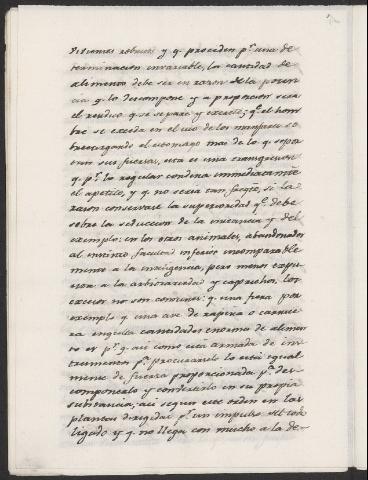 y q. proceden pr. una de
terminacion invariable, la cantidad de
alimento debe ser en razon de la poten
cia q. lo descompone y a proporcion sera
el residuo q. se separe y excrete; q. el hom
bre se exceda en el uso de los manjares so
brecargando el estomago mas de lo q. sopor
tan sus fuerzas, esta es una transgresion
q. pr. lo regular condena inmediatamte
el apetito, y q. no seria tan freqte. si la
razon conservase la superioridad q. debe
sobre la seduccion de la instancia y del
exemplo: en los otros animales, abandonados
al instinto facultad inferior incomparable
mente a la inteligencia, pero menos expu
esta a la arbitrariedad y caprichos, los
excesos no son comunes: q. una fiera por
exemplo q. una ave de rapiña o carnice
ra engulla cantidades enormes de alimen
to es pr. q. asi como está armada de ins
trumentos pa. procurarselo lo está igual
mente de fuerza proporcionada pa. des
componerlo y convertirlo en su propia
substancia; asi sigue este orden en las
plantas dirigidas pr. un impulso
ligado y q. no llega con mucho a la de-